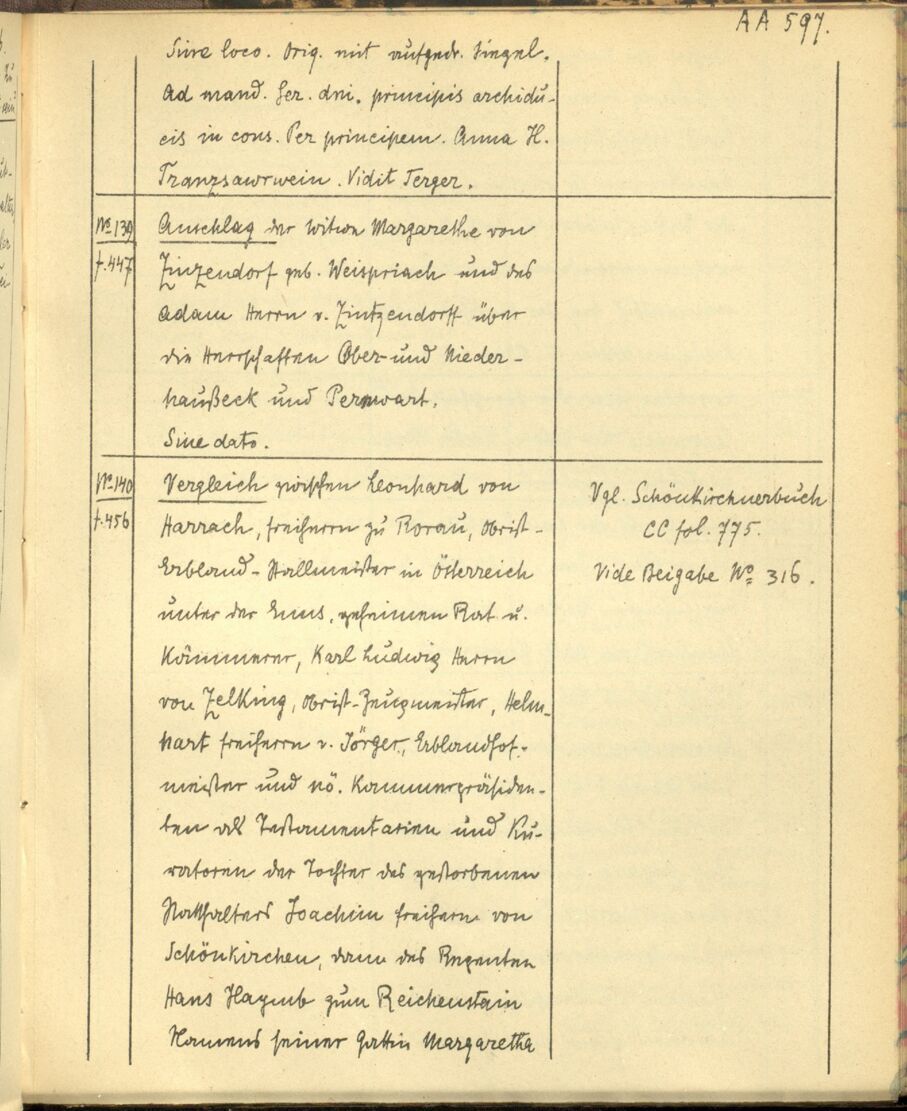 AA 597.
Sine loco. Orig. mit aufgedr. Siegel.
Ad mand. Ser. dni. principis archidu-
cis in cons. Per principem. Anna H.
Tranzsawrwein. Vidit Terger.
No 139 Anschlag der Witwe Margarethe von
f. 447 Zinzendorf geb. Weispriach und des
Adam Herrn v. Zintzendorff über
die Herrschaften Ober- und Nieder-
haußeck und Pernwart.
Sine dato.
No 140 Vergleich zwischen Leonhard von
f. 456 Harrach, Freiherrn zu Rorau, Obrist-
Erbland-Stallmeister in Österreich
unter der Enns, geheimen Rat u.
Kämmerer, Karl Ludwig Herrn
von Zelking, Obrist-Zeugmeister, Helm-
hart Freiherrn v. Jörger, Erblandhof-
meister und nö. Kammerpräsiden-
ten als Testamentarien und Ku-
ratoren der Tochter des gestorbenen
Statthalters Joachim Freiherrn von
Schönkirchen, dann des Regenten
Hans Haymb zum Reichenstain
Namens seiner Gattin Margaretha
Vgl. Schönkirchnerbuch
CC fol. 775.
Vide Beigabe No 316.